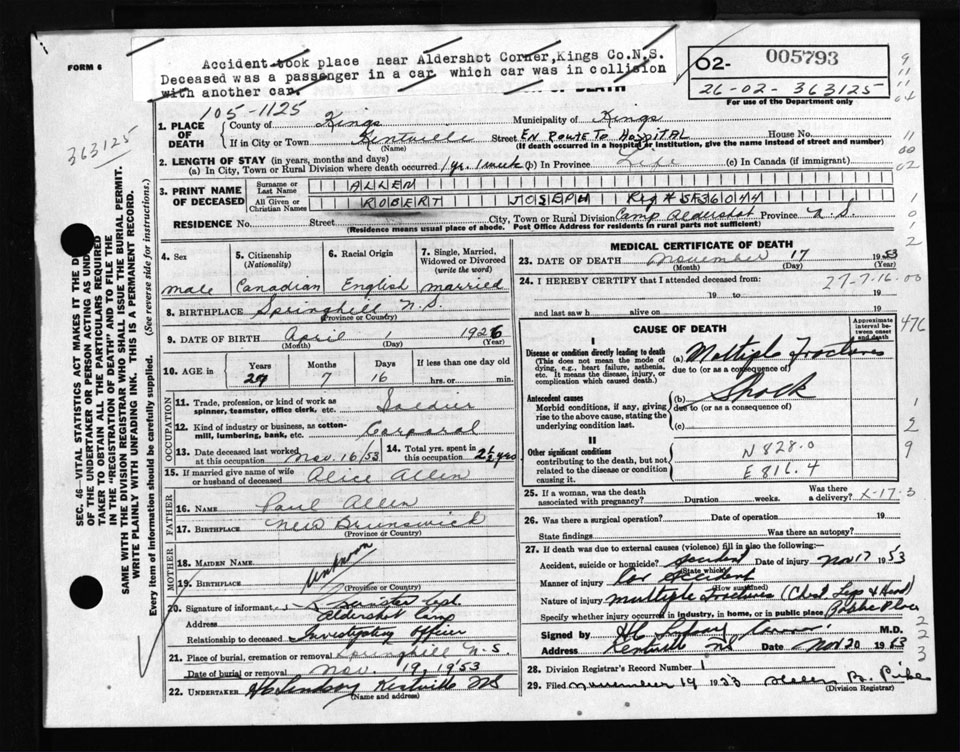 FORM 6
Accident took place near Aldershot Corner, Kings Co. N.S.
Deceased was a passenger in a car which car was in collision
with another car.
02- 005793
26-02-363125
For use of the Department only
OF DEATH
105-1125
363125
SEC. 46—VITAL STATISTICS ACT MAKES IT THE
OF THE UNDERTAKER OR PERSON ACTING AS UND
TAKER TO OBTAIN ALL THE PARTICULARS REQUIRED
IN THE "REGISTRATION OF DEATH" AND TO FILE THE
SAME WITH THE DIVISION REGISTRAR WHO SHALL ISSUE THE BURIAL PERMIT.
WRITE PLAINLY WITH UNFADING INK. THIS IS A PERMANENT RECORD.
Every item of information should be carefully supplied. (See reverse side for instructions.)
1. PLACE OF DEATH County of Kings Municipality of Kings
If in City or Town Kentville Street EN ROUTE TO HOSPITAL House No.
(Name) (If death occurred in a hospital or institution, give the name instead of street and number)
2. LENGTH OF STAY (in years, months and days)
(a) In City, Town or Rural Division where death occurred 1 yr. 1 week (b) In Province Life (c) In Canada (if immigrant)
3. PRINT NAME OF DECEASED Surname or Last Name ALLEN
All Given or Christian Names ROBERT JOSEPH Reg # SF36044
RESIDENCE No. Street City, Town or Rural Division Camp Aldershot Province N.S.
(Residence means usual place of abode. Post Office Address for residents in rural parts not sufficient)
4. Sex Male
5. Citizenship (Nationality) Canadian
6. Racial Origin English
7. Single, Married, Widowed or Divorced (write the word) Married
8. BIRTHPLACE Springhill N.S.
(Province or Country)
9. DATE OF BIRTH April 1 1926
(Month) (Day) (Year)
10. AGE in Years 27 Months 7 Days 16 If less than one day old hrs. or min.
OCCUPATION
11. Trade, profession, or kind of work as spinner, teamster, office clerk, etc. Soldier
12. Kind of industry or business, as cotton-mill, lumbering, bank, etc. Corporal
13. Date deceased last worked at this occupation Nov. 16/53
14. Total yrs. spent in this occupation 2½ yrs
15. If married give name of wife or husband of deceased Alice Allen
FATHER
16. NAME Paul Allen
17. BIRTHPLACE New Brunswick
(Province or Country)
MOTHER
18. MAIDEN NAME
19. BIRTHPLACE unknown
(Province or Country)
20. Signature of informant Capt.
Address Aldershot Camp
Relationship to deceased Investigating Officer
21. Place of burial, cremation or removal Springhill N.S.
Date of burial or removal Nov. 19, 1953
22. UNDERTAKER H C Lindsay Kentville NS
(Name and address)
MEDICAL CERTIFICATE OF DEATH
23. DATE OF DEATH November 17 1953
(Month) (Day) (Year)
24. I HEREBY CERTIFY that I attended deceased from:
27-7-16-00
19 to 19
and last saw h alive on 19
CAUSE OF DEATH
Approximate interval between onset and death
I
Disease or condition directly leading to death (a) Multiple Fractures
(This does not mean the mode of dying, e.g., heart failure, asthenia, etc. It means the disease, injury, or complication which caused death.)
due to (or as a consequence of)
Antecedent causes (b) Shock
Morbid conditions, if any, giving rise to the above cause, stating the underlying condition last.
due to (or as a consequence of)
(c)
II
Other significant conditions
contributing to the death, but not related to the disease or condition causing it.
N 828.0
E 816.4
25. If a woman, was the death associated with pregnancy? Duration weeks. Was there a delivery? X-17-3
26. Was there a surgical operation? Date of operation 19
State findings Was there an autopsy?
27. If death was due to external causes (violence) fill in also the following:—
Accident, suicide or homicide? Accident Date of injury Nov 17 1953
(State which)
Manner of injury Car Accident
(How sustained)
Nature of injury Multiple Fractures (Chest Legs & Head)
Specify whether injury occurred in industry, in home, or in public place Public Place
Signed by Coroner M.D.
Address Kentville NS Date Nov 20 1953
28. Division Registrar's Record Number 1
29. Filed November 19 1953 Helen B. Pike
(Division Registrar)
476